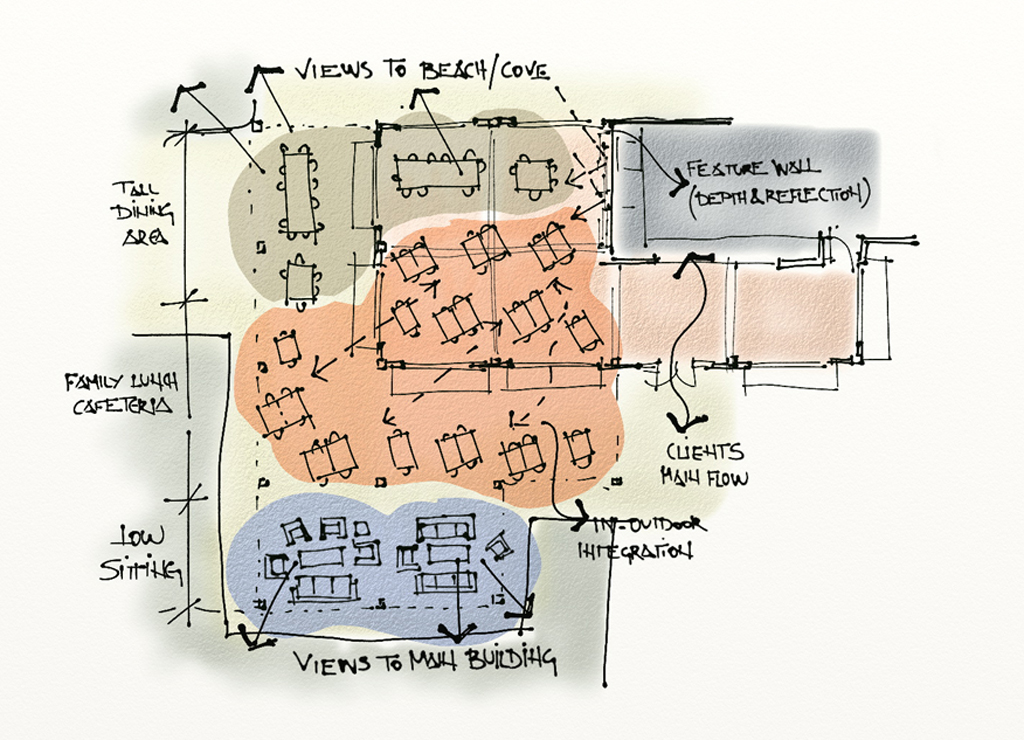 VIEWS TO BEACH/COVE
TALL
DINING
AREA
FEATURE WALL
(DEPTH & REFLECTION)
FAMILY LUNCH
CAFETERIA
CLIENTS
MAIN FLOW
LOW
SITTING
IN-OUTDOOR
INTEGRATION
VIEWS TO MAIN BUILDING